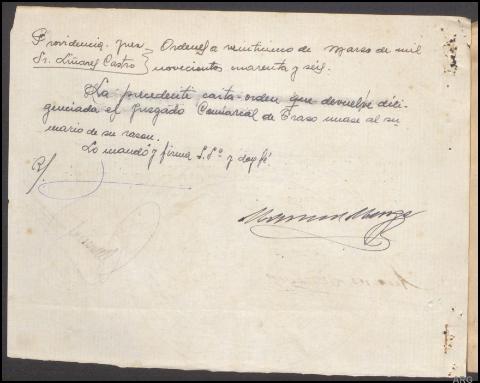 Providencia Juez } Ordenes a veintiuno de Marzo de mil
Sr. Liñares Castro } novecientos cuarenta y séis.
La precedente carta-orden que devuelve dili-
genciada el Juzgado Comarcal de Traso unase al su-
mario de su razon.
Lo mandó y firma S.Sª. y doy fé.
R/.
ARG